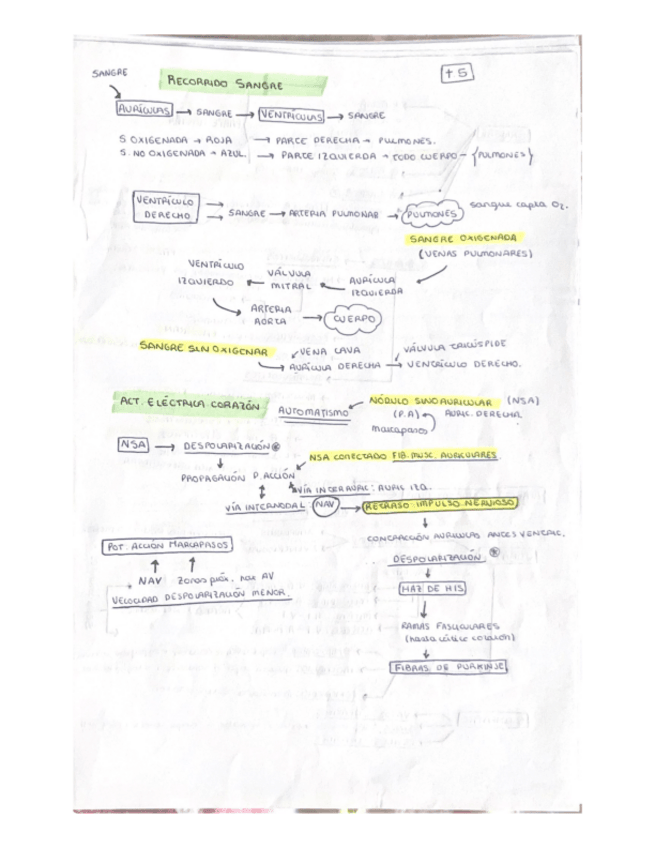 SANGRE
RECORRIDO SANGRE
T 5
AURÍCULAS → SANGRE → VENTRÍCULOS → SANGRE
S. OXIGENADA → ROJA → PARTE DERECHA → PULMONES.
S. NO OXIGENADA → AZUL. → PARTE IZQUIERDA → TODO CUERPO - {PULMONES}
VENTRÍCULO DERECHO → SANGRE → ARTERIA PULMONAR → PULMONES sangue capta O2.
SANGRE OXIGENADA
(VENAS PULMONARES)
VENTRÍCULO IZQUIERDO ← VÁLVULA MITRAL ← AURÍCULA IZQUIERDA
ARTERIA AORTA → CUERPO
SANGRE SIN OXIGENAR
VENA CAVA
VÁLVULA TRICÚSPIDE
→ AURÍCULA DERECHA → VENTRÍCULO DERECHO.
ACT. ELÉCTRICA CORAZÓN
AUTOMATISMO ← NÓDULO SINOAURICULAR (NSA)
(P.A) AURIC. DERECHA
marcapasos
NSA → DESPOLARIZACIÓN
NSA CONECTADO FIB. MUSC. AURICULARES.
PROPAGACIÓN P. ACCIÓN
VÍA INTERAURIC: AURIC IZQ.
VÍA INTERNODAL NAV → RETRASO IMPULSO NERVIOSO
CONTRACCIÓN AURÍCULAS ANTES VENTRIC.
POT. ACCIÓN MARCAPASOS
DESPOLARIZACIÓN
NAV Zonas próx. NAV
VELOCIDAD DESPOLARIZACIÓN MENOR.
HAZ DE HIS
RAMAS FASCICULARES
FIBRAS DE PURKINJE